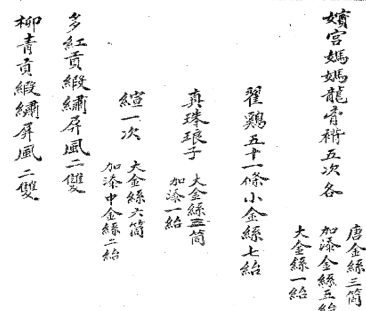 嬪宮媽媽龍膏衫五次各
唐金絲三筒
加漆金絲五給
大金絲一給
翟鷄五十一條小金絲七給
真珠琅子
大金絲五筒
加漆一給
縇一次
大金絲六筒
加漆中金絲二給
多紅貢緞繡屏風二雙
柳青貢緞繡屏風二雙